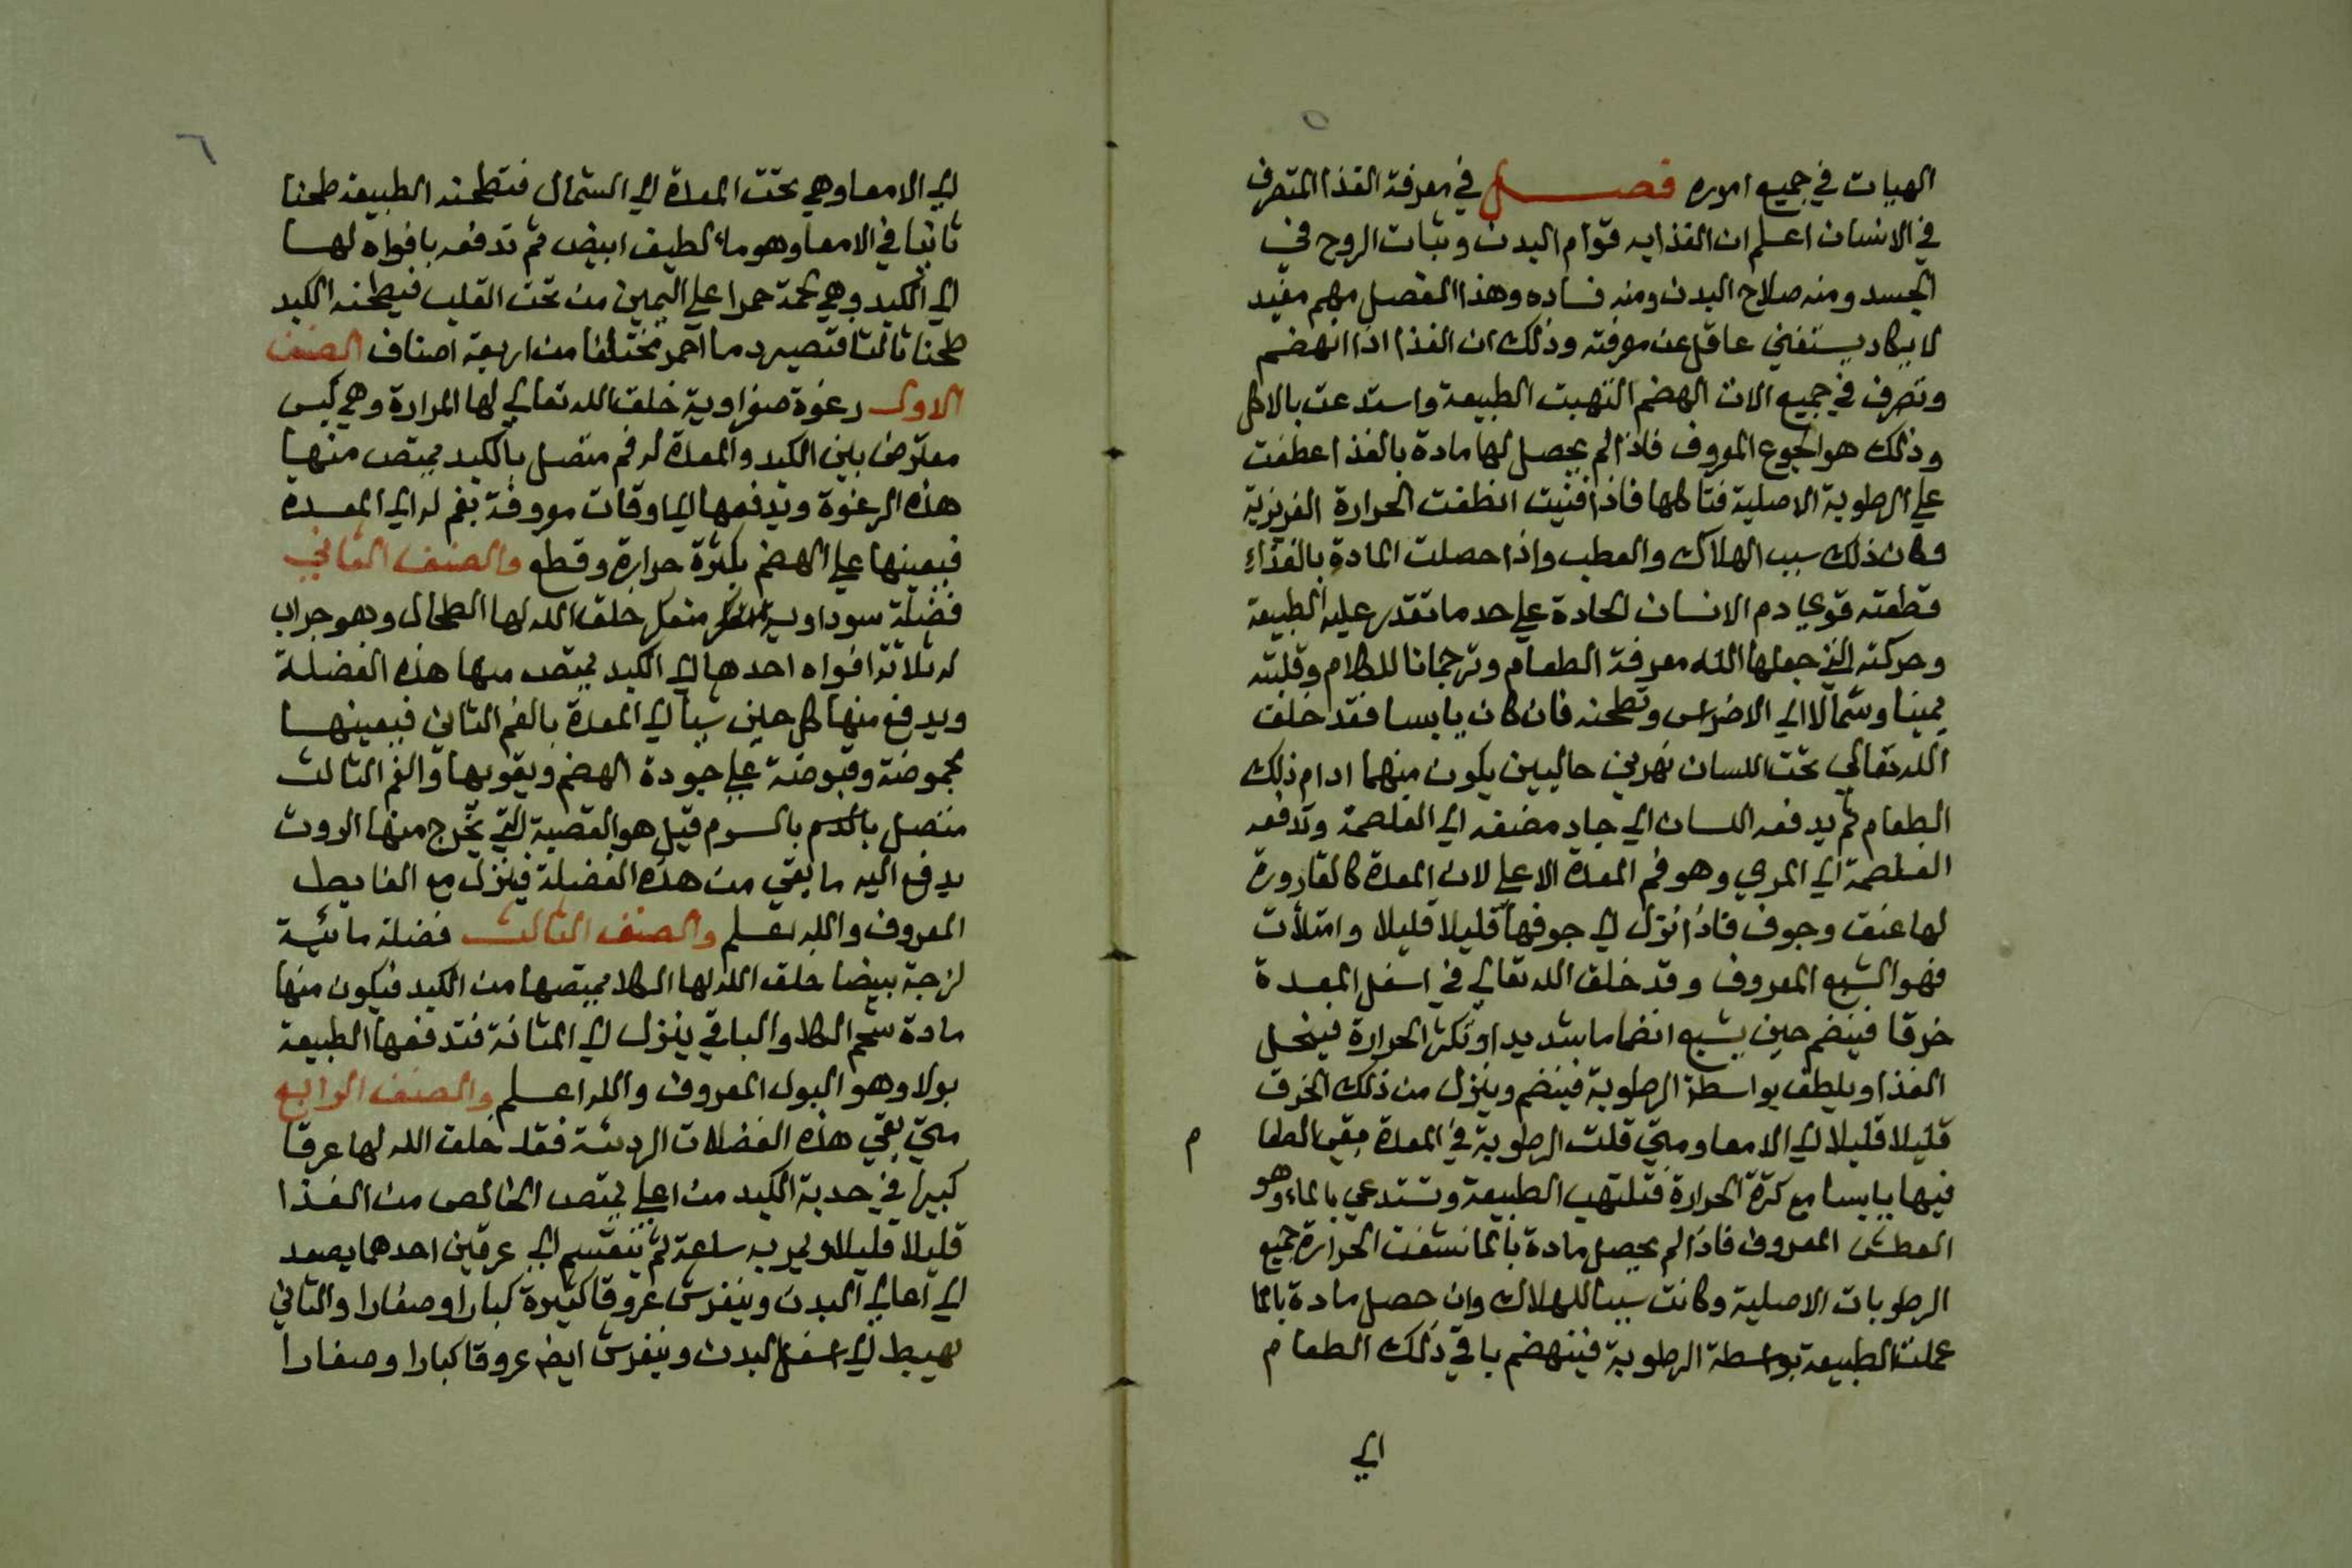 ٥
الهيات في جميع اموره فصل في معرفة الغذا المتصرف
في الانسان اعلم ان الغذا به قوام البدن وثبات الروح في
الجسد ومنه صلاح البدن ومنه فساده وهذا الفصل مهم مفيد
لا يكاد يستغني عاقل عن معرفته وذلك ان الغذا اذا انهضم
وتصرف في جميع الات الهضم التهبت الطبيعة واستدعت بالاكل
وذلك هو الجوع المعروف فاذا لم يحصل لها مادة بالغذا عطفت
علي الرطوبة الاصلية فتاكلها فاذا افنيت انطفت الحرارة الغريزية
فكان ذلك سبب الهلاك والعطب واذا حصلت المادة بالغذاء
قطعته قوي ادم الانسان الحادة علي حد ما تقدر عليه الطبيعة
وحركته التي جعلها الله معرفة الطعام وترجمانا للكلام وقلبته
يمينا وشمالا الي الاضراس وتطحنه فان كان يابسا فقد خلق
الله تعالي تحت اللسان نهرين حاليين يكون منهما ادام ذلك
الطعام ثم يدفعه اللسان الي جاد مضغه الي الغلصمة وتدفعه
الغلصمة الي المري وهو فم المعدة الاعلي لان المعدة كالقارورة
لها عنق وجوف فاذا نزل الي جوفها قليلا قليلا وامتلأت
فهو الشبع المعروف وقد خلق الله تعالي في اسفل المعدة
خرقا فينضم حين يشبع انضماما شديدا وتكثر الحرارة فينحل
الغذا ويلطف بواسطة الرطوبة فينضم وينزل من ذلك الخرق
قليلا قليلا الي الامعا ومتي قلت الرطوبة في المعدة بقي الطعا م
فيها يابسا مع كثرة الحرارة فتلتهب الطبيعة وتستدعي بالماء وهو
العطش المعروف فاذا لم يحصل مادة بالما نشفت الحرارة جميع
الرطوبات الاصلية وكانت سببا للهلاك وان حصل مادة بالما
عملت الطبيعة بواسطة الرطوبة فينهضم باقي ذلك الطعام
الي
٦
الي الامعا وهي تحت المعدة الي الشمال فتطحنه الطبيعة طحنا
ثانيا في الامعا وهو ماء لطيف ابيض ثم تدفعه بافواه لها
الي الكبد وهي لحمة حمرا علي اليمين من تحت القلب فيطحنه الكبد
طحنا ثالثا فتصير دما احمر مختلفا من اربعة اصناف الصنف
الاول رغوة صفراوية خلق الله تعالي لها المرارة وهي كيس
معترض بين الكبد والمعدة له فم متصل بالكبد يمتص منها
هذه الرغوة ويدفعها الي اوقات معروفة بفم له الي المعدة
فيعينها علي الهضم بكثرة حرارة وقطع والصنف الثاني
فضلة سوداوية منعكر خلق الله لها الطحال وهو جراب
له ثلاثة افواه احدها الي الكبد يمتص منها هذه الفضلة
ويدفع منها كل حين شيأ الي المعدة بالفم الثاني فيعينها
بحموضة وقبوضة علي جودة الهضم ويقويها والفم الثالث
متصل بالسرم قيل هو القصبة التي تخرج منها الروث
يدفع اليه ما بقي من هذه الفضلة فينزل مع الغايط
المعروف والله تعلم والصنف الثالث فضلة مائية
لزجة بيضا خلق الله لها الكلا يمتصها من الكبد فيكون منها
مادة شحم الكلا والباقي ينزل الي المثانة فتدفعها الطبيعة
بولا وهو البول المعروف والله اعلم والصنف الرابع
متي بقي هذه الفضلات الرديئة فقد خلق الله لها عرقا
كبيرا في حدبة الكبد من اعلي يمتص الخالص من الغذا
قليلا قليلا ويمر به ساعة ثم ينقسم الي عرقين احدهما يصعد
الي اعالي البدن وينفرش عروقا كثيرة كبارا وصغارا والثاني
يهبط الي اسفل البدن وينفرش ايضا عروقا كبارا وصغارا